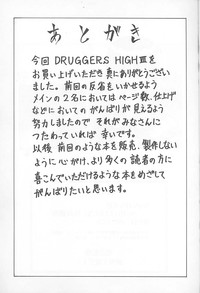 あとがき
今回 DRUGGERS HIGH Ⅲを
お買い上げいただき真にありがとうござい
ました。前回の反省をいかせるよう
メインの2名においてはページ数、仕上げ
などにおいてのがんばりが見えるよう
努力しましたので それがみなさんに
つたわっていれば 幸いです。
以後 前回のような本を販売、製作しない
ように心がけ、より多くの読者の方に
喜こんでいただけるような本をめざして
がんばりたいと思います。